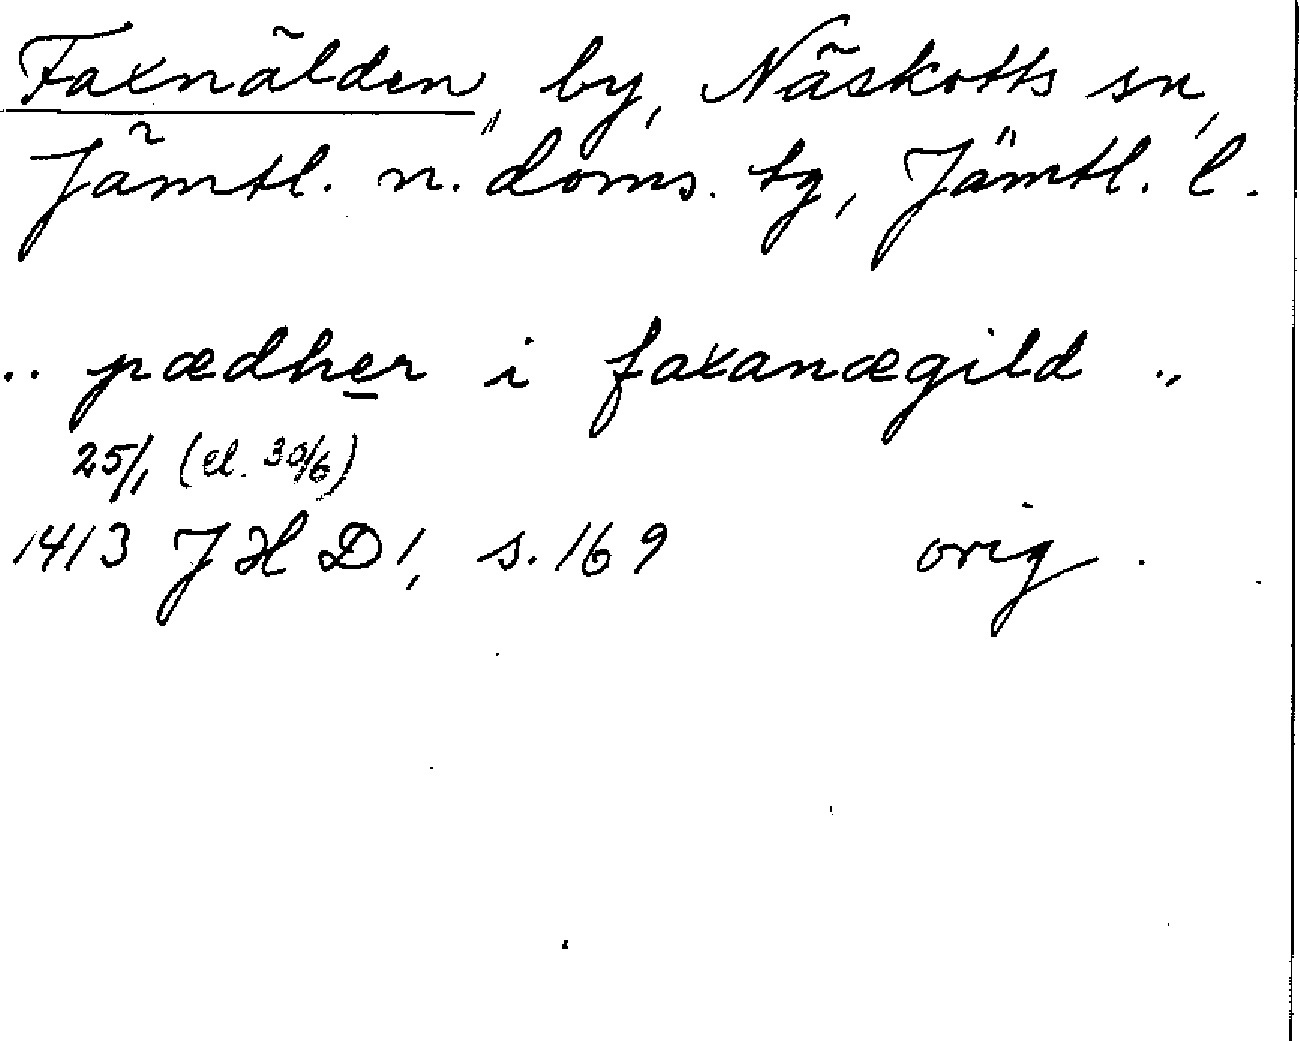 Faxnälden, by, Näskotts sn,
Jämtl. n. doms. tg, Jämtl. l.
.. pædher i faxanægild ..
25/1 (el. 30/6)
1413 JHD 1, s. 169 orig.